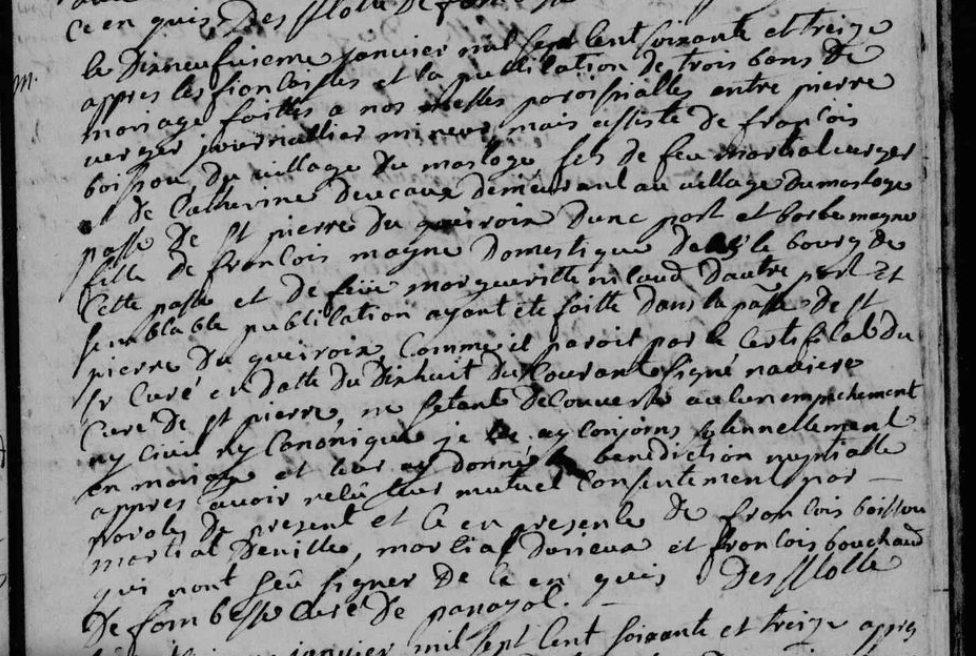 ce en quis Des flotte De fombesse
le Dixneufuieme janvier mil sept Cent soixante et treize
m.
appres les fiancailles et la publication de trois bans De
mariage faittes a nos messes paroissialles entre pierre
verger journallier mineur, mais assisté De françois
boissou, du village Du masloge fils de feu martial verger
et De Catherine Devcaux demeurant au village Dumasloge
passe De st pierre Du queiroix Dune part et barbe magne
fille De françois magne Domestique De le bourg de
Cette passe et De feüe margueritte nicaud Dautre part Et
semblable publication ayant eté faitte dans la passe De st
pierre Du queiroix Comme il paroit par le Certificat du
sr Curé en Datte Du Dixhuit Du Courant signé naviere
Curé De st pierre, ne setant Decouvert aucun empechement
ny civil ny Canonique je les ay Conjoins solennellement
en mariage et leur ay donné la benediction nuptialle
appres avoir reçû leur mutuel Consentement par
parole De present et Ce en presence De françois boissou
martial Denille, martial et françois bouchaud
qui nont sçeu signer De Ce en quis Desflotte
De fombesse Curé De panazol.
janvier mil sept Cent soixante et treize appres